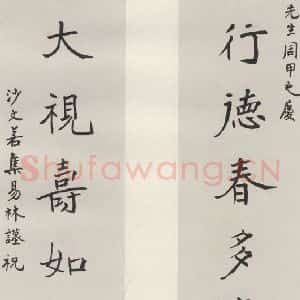 先生同甲之慶
行德春多
大視壽如
沙文若集易林謹祝
Shufawang.CN